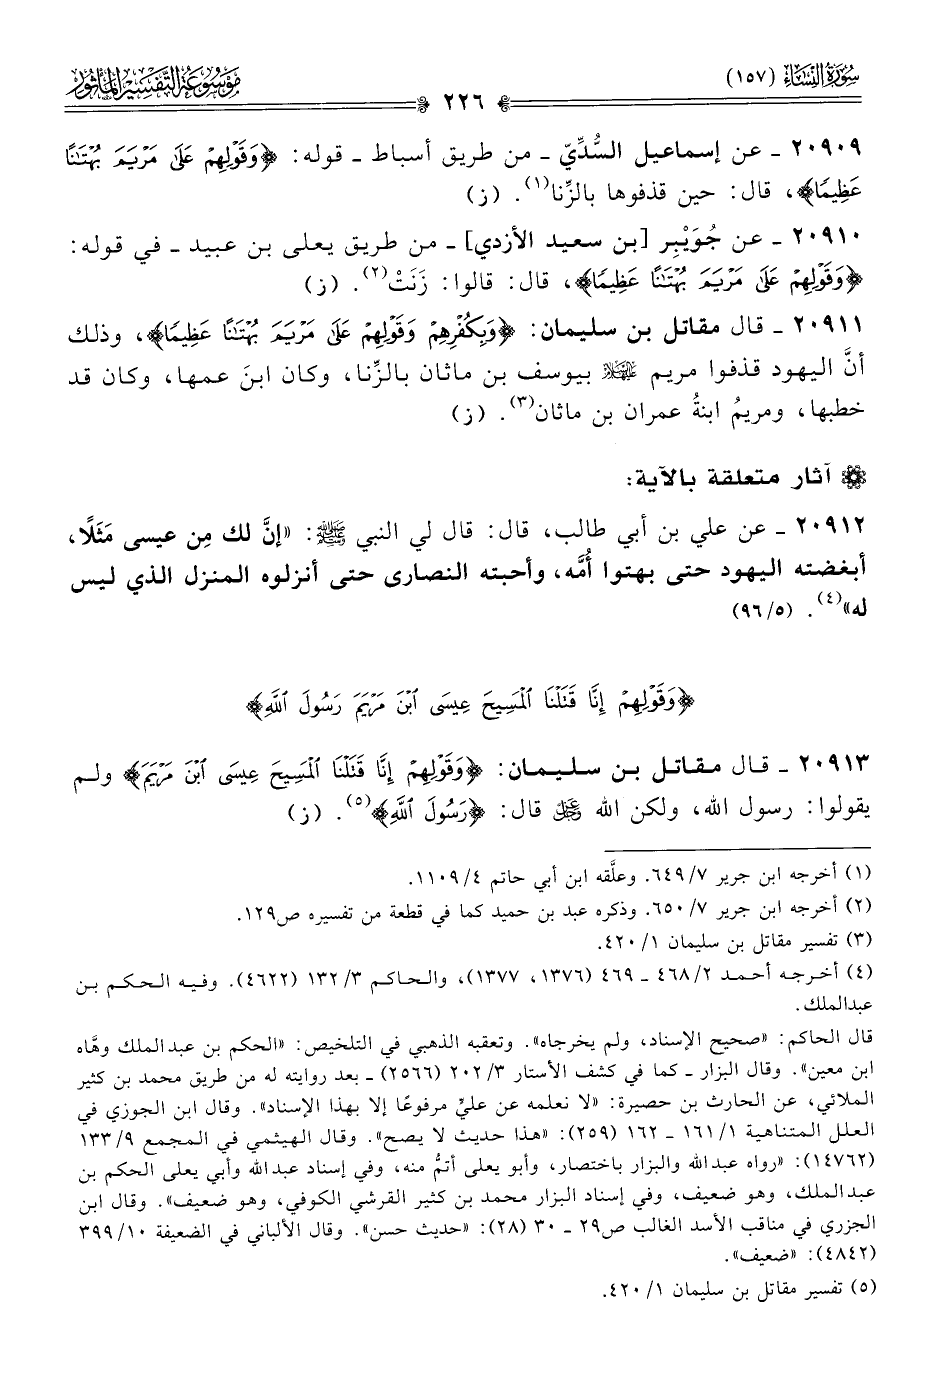 سورة النساء (١٥٧)
٢٢٦
موسوعة التفسير المأثور
٢٠٩٠٩ ـ عن إسماعيل السُّدِّيّ ـ من طريق أسباط ـ قوله: ﴿وَقَوْلِهِمْ عَلَىٰ مَرْيَمَ بُهْتَٰنًا
عَظِيمًا﴾، قال: حين قذفوها بالزِّنا(١). (ز)
٢٠٩١٠ ـ عن جُوَيْبِر [بن سعيد الأزدي] ـ من طريق يعلى بن عبيد ـ في قوله:
﴿وَقَوْلِهِمْ عَلَىٰ مَرْيَمَ بُهْتَٰنًا عَظِيمًا﴾، قال: قالوا: زَنَتْ(٢). (ز)
٢٠٩١١ ـ قال مقاتل بن سليمان: ﴿وَبِكُفْرِهِمْ وَقَوْلِهِمْ عَلَىٰ مَرْيَمَ بُهْتَٰنًا عَظِيمًا﴾، وذلك
أنَّ اليهود قذفوا مريم عليها السلام بيوسف بن ماثان بالزِّنا، وكان ابنَ عمها، وكان قد
خطبها، ومريمُ ابنةُ عمران بن ماثان(٣). (ز)
آثار متعلقة بالآية:
٢٠٩١٢ ـ عن علي بن أبي طالب، قال: قال لي النبي ﷺ: «إنَّ لك مِن عيسى مَثَلًا،
أبغضته اليهود حتى بهتوا أُمَّه، وأحبته النصارى حتى أنزلوه المنزل الذي ليس
له»(٤). (٩٦/٥)
﴿وَقَوْلِهِمْ إِنَّا قَتَلْنَا ٱلْمَسِيحَ عِيسَى ٱبْنَ مَرْيَمَ رَسُولَ ٱللَّهِ﴾
٢٠٩١٣ ـ قال مقاتل بن سليمان: ﴿وَقَوْلِهِمْ إِنَّا قَتَلْنَا ٱلْمَسِيحَ عِيسَى ٱبْنَ مَرْيَمَ﴾ ولم
يقولوا: رسول الله، ولكن الله عز وجل قال: ﴿رَسُولَ ٱللَّهِ﴾(٥). (ز)
(١) أخرجه ابن جرير ٦٤٩/٧. وعلَّقه ابن أبي حاتم ١١٠٩/٤.
(٢) أخرجه ابن جرير ٦٥٠/٧. وذكره عبد بن حميد كما في قطعة من تفسيره ص١٢٩.
(٣) تفسير مقاتل بن سليمان ٤٢٠/١.
(٤) أخرجه أحمد ٤٦٨/٢ ـ ٤٦٩ (١٣٧٦، ١٣٧٧)، والحاكم ١٣٢/٣ (٤٦٢٢). وفيه الحكم بن
عبدالملك.
قال الحاكم: «صحيح الإسناد، ولم يخرجاه». وتعقبه الذهبي في التلخيص: «الحكم بن عبدالملك وهَّاه
ابن معين». وقال البزار ـ كما في كشف الأستار ٢٠٢/٣ (٢٥٦٦) ـ بعد روايته له من طريق محمد بن كثير
الملائي، عن الحارث بن حصيرة: «لا نعلمه عن عليٍّ مرفوعًا إلا بهذا الإسناد». وقال ابن الجوزي في
العلل المتناهية ١٦١/١ ـ ١٦٢ (٢٥٩): «هذا حديث لا يصح». وقال الهيثمي في المجمع ١٣٣/٩
(١٤٧٦٢): «رواه عبدالله والبزار باختصار، وأبو يعلى أتمُّ منه، وفي إسناد عبدالله وأبي يعلى الحكم بن
عبدالملك، وهو ضعيف، وفي إسناد البزار محمد بن كثير القرشي الكوفي، وهو ضعيف». وقال ابن
الجزري في مناقب الأسد الغالب ص٢٩ ـ ٣٠ (٢٨): «حديث حسن». وقال الألباني في الضعيفة ٣٩٩/١٠
(٤٨٤٢): «ضعيف».
(٥) تفسير مقاتل بن سليمان ٤٢٠/١.